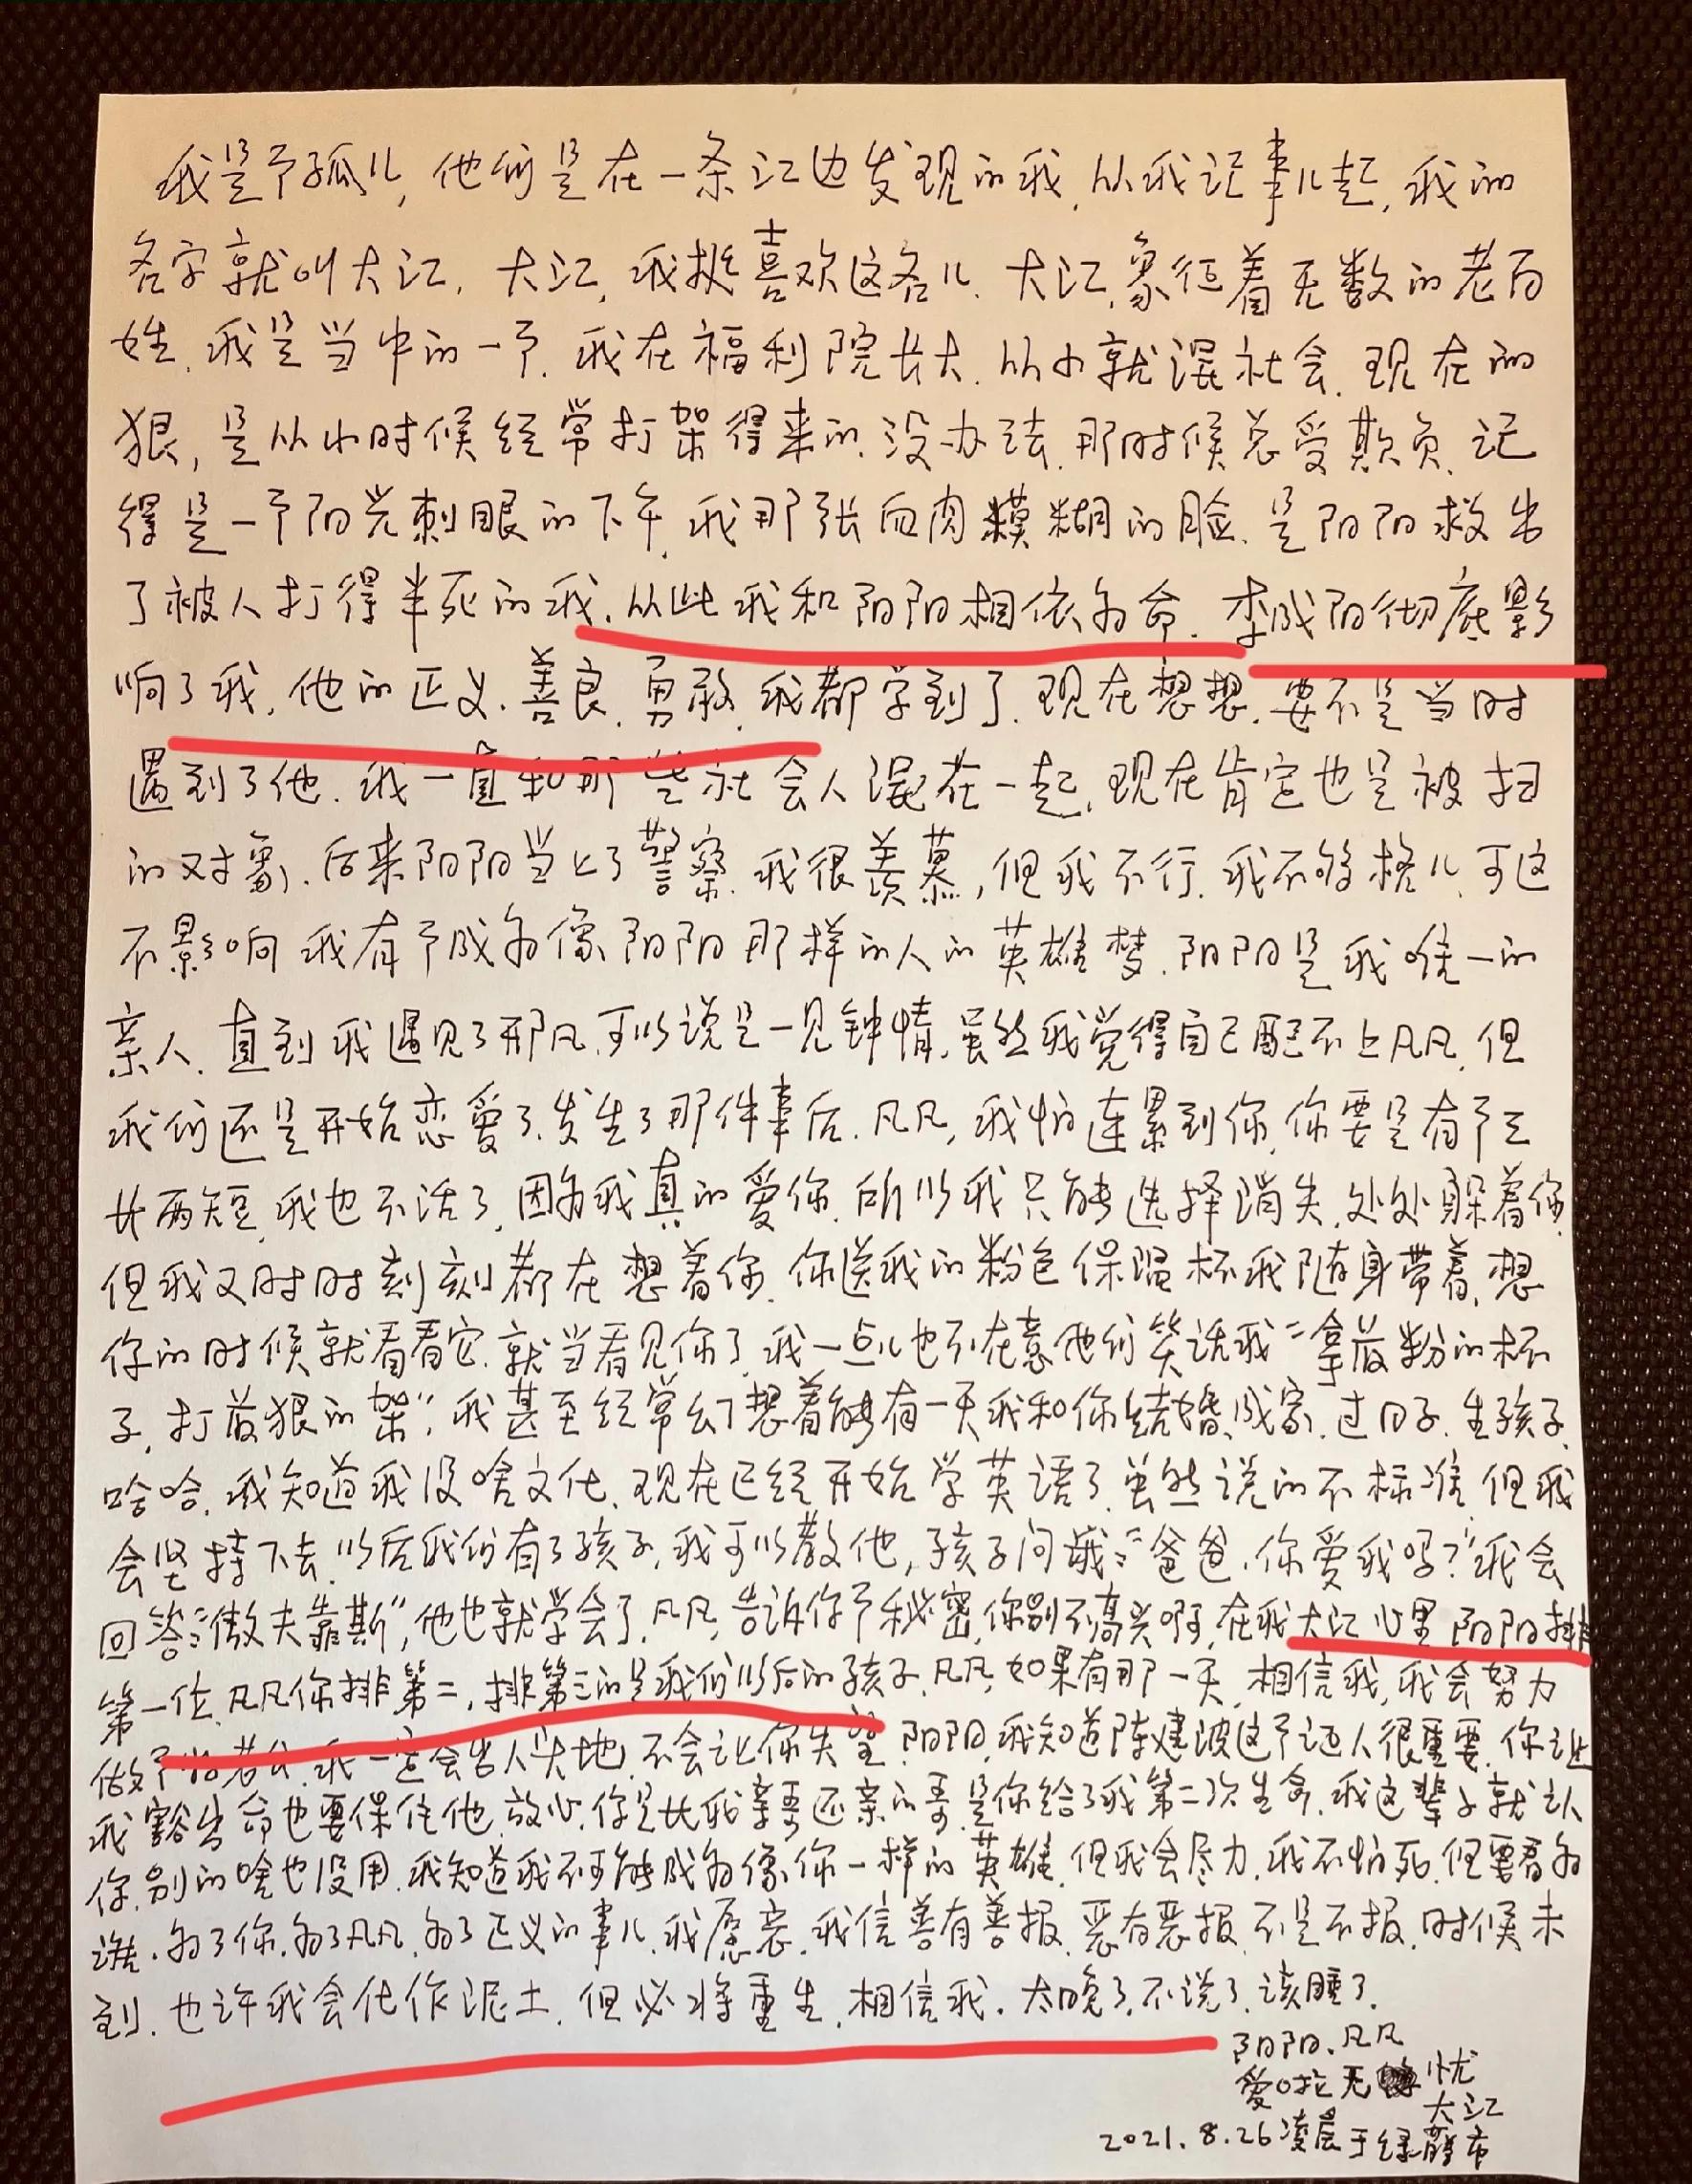 我是个孤儿,他们是在一条江边发现的我.从我记事儿起,我的
名字就叫大江.大江,我挺喜欢这名儿.大江,象征着无数的老百
姓.我是当中的一个.我在福利院长大.从小就混社会.现在的
狠,是从小时候经常打架得来的.没办法.那时候总受欺负.记
得是一个阳光刺眼的下午.我那张血肉模糊的脸.是阳阳救出
了被人打得半死的我.从此我和阳阳相依为命.李成阳彻底影
响了我,他的正义.善良.勇敢.我都学到了.现在想想.要不是当时
遇到了他.我一直和那些社会人混在一起.现在肯定也是被扫
的对象.后来阳阳当上了警察.我很羡慕,但我不行.我不够格儿.可这
不影响我有个成为像阳阳那样的人的英雄梦.阳阳是我唯一的
亲人.直到我遇见了邢凡.可以说是一见钟情.虽然我觉得自己配不上凡凡.但
我们还是开始恋爱了.发生了那件事后.凡凡,我怕连累到你.你要是有个三
长两短.我也不活了.因为我真的爱你.所以我只能选择消失.处处躲着你.
但我又时时刻刻都在想着你.你送我的粉色保温杯我随身带着.想
你的时候就看看它.就当看见你了.我一点儿也不在意他们笑话我“拿最粉的杯
子,打最狠的架”.我甚至经常幻想着能有一天我和你结婚.成家.过日子.生孩子.
哈哈.我知道我没啥文化.现在已经开始学英语了.虽然说的不标准.但我
会坚持下去.以后我们有了孩子.我可以教他,孩子问我:“爸爸.你爱我吗?”我会
回答:“傲夫靠斯”,他也就学会了.凡凡,告诉你个秘密.你别不高兴啊.在我大江心里阳阳排
第一位.凡凡你排第二,排第三的是我们以后的孩子.凡凡,如果有那一天.相信我,我会努力
做个好老公.我一定会出人头地.不会让你失望.阳阳,我知道陈建波这个证人很重要.你让
我豁出命也要保住他.放心.你是比我亲哥还亲的哥.是你给了我第二次生命.我这辈子就认
你.别的啥也没用.我知道我不可能成为像你一样的英雄.但我会尽力.我不怕死.但要看为
谁.为了你.为了凡凡.为了正义的事儿.我愿意.我信善有善报.恶有恶报.不是不报.时候未
到.也许我会化作泥土.但必将重生.相信我.太晚了.不说了.该睡了.
阳阳.凡凡
爱啦无忧
大江
2021.8.26凌晨于绿藤市